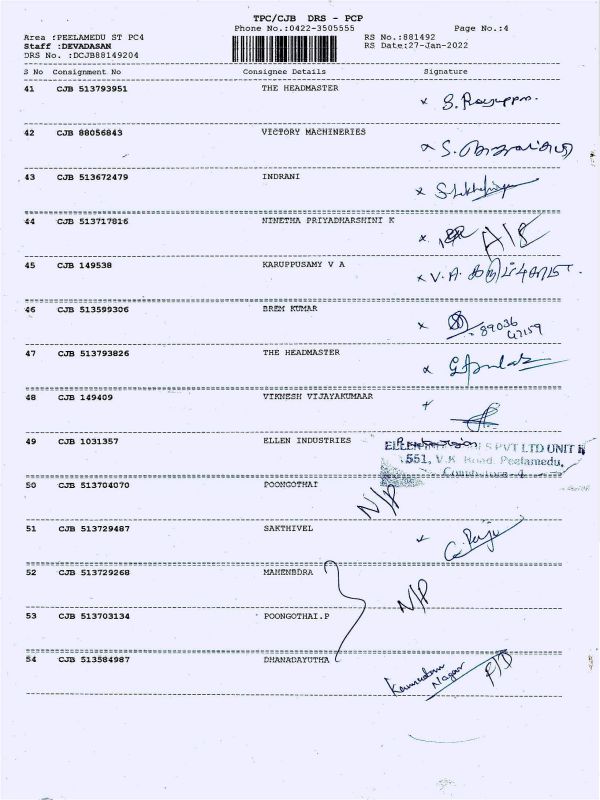 TPC/CJB DRS - PCP
Phone No.:0422-3505555 Page No.:4
Area :PEELAMEDU ST PC4 RS No.:881492
Staff :DEVADASAN RS Date:27-Jan-2022
DRS No. :DCJB88149204
S No Consignment No Consignee Details Signature
41 CJB 513793951 THE HEADMASTER
42 CJB 88056843 VICTORY MACHINERIES
43 CJB 513672479 INDRANI
44 CJB 513717816 NINETHA PRIYADHARSHINI K
45 CJB 149538 KARUPPUSAMY V A V.A.
46 CJB 513599306 BREM KUMAR 89036
47159
47 CJB 513793826 THE HEADMASTER
48 CJB 149409 VIKNESH VIJAYAKUMAAR
49 CJB 1031357 ELLEN INDUSTRIES PVT LTD UNIT II
551, V.K. Road, Peelamedu,
Coimbatore - 4
50 CJB 513704070 POONGOTHAI N/P
51 CJB 513729487 SAKTHIVEL
52 CJB 513729268 MAHENBDRA N/P
53 CJB 513703134 POONGOTHAI.P
54 CJB 513584987 DHANADAYUTHA Nagar